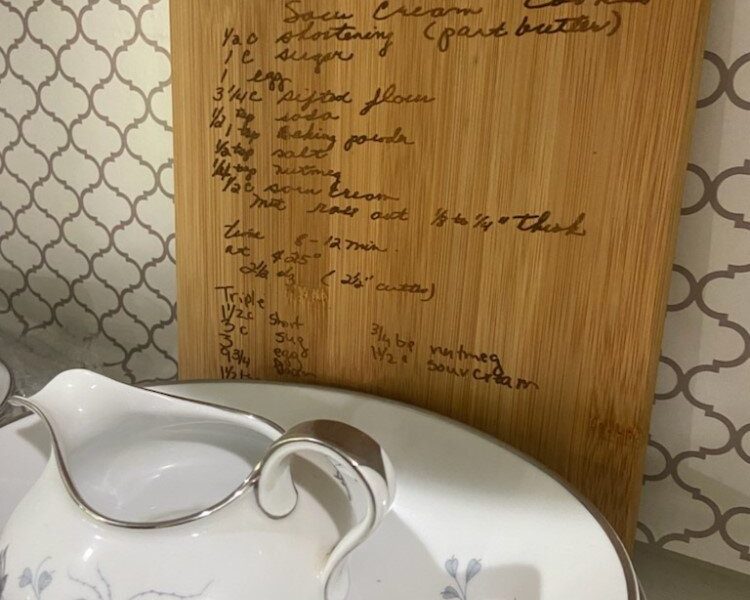 Sour Cream
1/2 c shortening (part butter)
1 c sugar
1 egg
3 1/4 c sifted flour
1/2 tsp soda
1 tsp baking powder
1/2 tsp salt
1/4 tsp nutmeg
1/2 c sour cream
roll out 1/8 to 1/4" thick
time 8-12 min.
at 425°
2 1/2 dz (2 1/2" cutter)
Triple
1 1/2 c short
3 c sug
3 eggs
9 3/4
1 1/2
3/4 tsp nutmeg
1 1/2 c sour cream